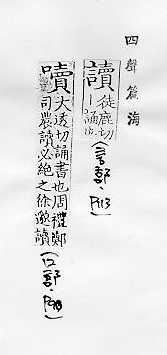 四聲篇海
讀徒鹿切
丨誦也
(言部.P113)
讀大透切誦書也周禮鄭
司農讀必絶之徐邈讀
(口部.P98)